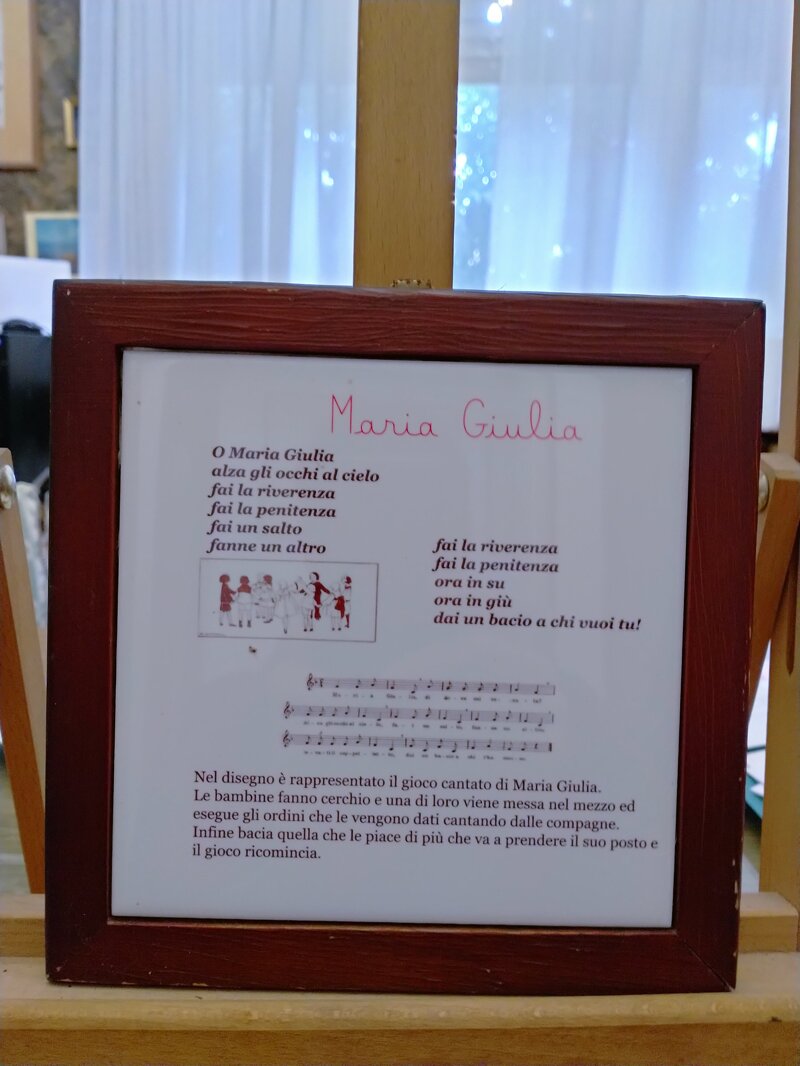 Maria Giulia
O Maria Giulia
alza gli occhi al cielo
fai la riverenza
fai la penitenza
fai un salto
fanne un altro
fai la riverenza
fai la penitenza
ora in su
ora in giù
dai un bacio a chi vuoi tu!
Nel disegno è rappresentato il gioco cantato di Maria Giulia.
Le bambine fanno cerchio e una di loro viene messa nel mezzo ed
esegue gli ordini che le vengono dati cantando dalle compagne.
Infine bacia quella che le piace di più che va a prendere il suo posto e
il gioco ricomincia.